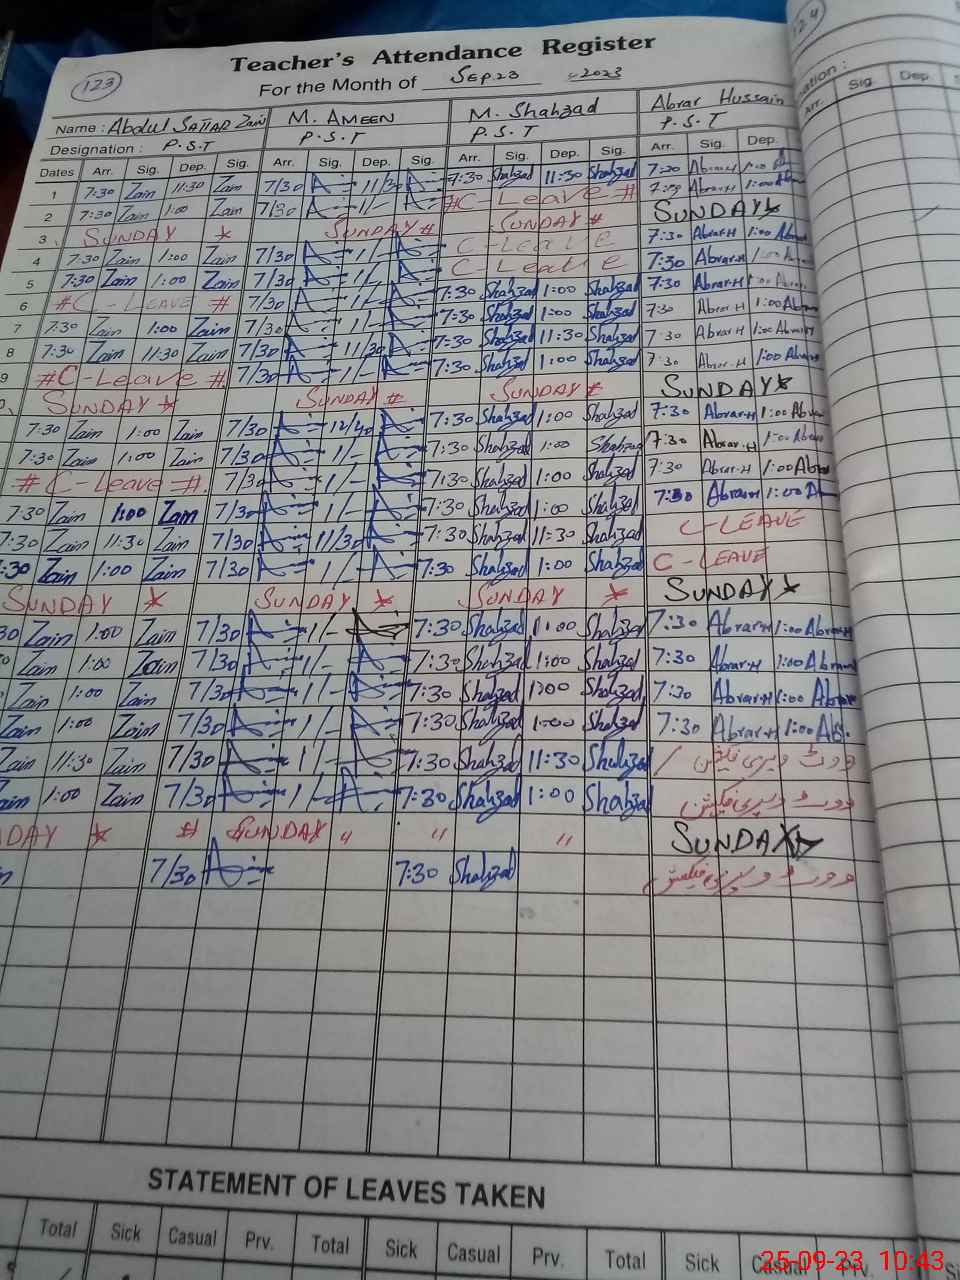 123
124
Teacher's Attendance Register
For the Month of Sep.23 2023
Name : Abdul Sattar Zain M. AMEEN M. Shahzad Abrar Hussain
Designation : P.S.T P.S.T P.S.T P.S.T
Dates Arr. Sig. Dep. Sig. Arr. Sig. Dep. Sig. Arr. Sig. Dep. Sig. Arr. Sig. Dep. Arr. Sig. Dep.
1 7:30 Zain 11:30 Zain 7/30 11/30 7:30 Shahzad 11:30 Shahzad 7:30 Abrar-H 1:00
2 7:30 Zain 1:00 Zain 7/30 1/- #C-Leave # 7:30 Abrar-H 1:00
3 SUNDAY * SUNDAY # SUNDAY # SUNDAY*
4 7:30 Zain 1:00 Zain 7/30 1/- C-Leave 7:30 Abrar-H 1:00
5 7:30 Zain 1:00 Zain 7/30 1/- C-Leave 7:30 Abrar-H 1:00
6 #C-LEAVE # 7/30 1/- 7:30 Shahzad 1:00 Shahzad 7:30 Abrar-H 1:00
7 7:30 Zain 1:00 Zain 7/30 1/- 7:30 Shahzad 1:00 Shahzad 7:30 Abrar-H 1:00
8 7:30 Zain 11:30 Zain 7/30 11/30 7:30 Shahzad 11:30 Shahzad 7:30 Abrar-H 1:00
9 #C-Leave # 7/30 1/- 7:30 Shahzad 1:00 Shahzad 7:30 Abrar-H 1:00
SUNDAY * SUNDAY # SUNDAY # SUNDAY*
7:30 Zain 1:00 Zain 7/30 12/40 7:30 Shahzad 1:00 Shahzad 7:30 Abrar-H 1:00
7:30 Zain 1:00 Zain 7/30 1/- 7:30 Shahzad 1:00 Shahzad 7:30 Abrar-H 1:00
# C-Leave # 7/30 1/- 7:30 Shahzad 1:00 Shahzad 7:30 Abrar-H 1:00
7:30 Zain 1:00 Zain 7/30 1/- 7:30 Shahzad 1:00 Shahzad 7:30 Abrar-H 1:00
7:30 Zain 11:30 Zain 7/30 11/30 7:30 Shahzad 11:30 Shahzad C-LEAVE
:30 Zain 1:00 Zain 7/30 1/- 7:30 Shahzad 1:00 Shahzad C-LEAVE
SUNDAY * SUNDAY * SUNDAY * SUNDAY*
30 Zain 1:00 Zain 7/30 1/- 7:30 Shahzad 1:00 Shahzad 7:30 Abrar-H 1:00
Zain 1:00 Zain 7/30 1/- 7:30 Shahzad 1:00 Shahzad 7:30 Abrar-H 1:00
Zain 1:00 Zain 7/30 1/- 7:30 Shahzad 1:00 Shahzad 7:30 Abrar-H 1:00
Zain 1:00 Zain 7/30 1/- 7:30 Shahzad 1:00 Shahzad 7:30 Abrar-H 1:00
Zain 11:30 Zain 7/30 1/- 7:30 Shahzad 11:30 Shahzad ووٹ ویری فیکیشن
1:00 Zain 7/30 1/- 7:30 Shahzad 1:00 Shahzad ووٹ ویری فیکیشن
DAY * # SUNDAY " " " SUNDAY
7/30 7:30 Shahzad ووٹ ویری فیکیشن
STATEMENT OF LEAVES TAKEN
Total Sick Casual Prv. Total Sick Casual Prv. Total Sick Casual Prv.
25-09-23 10:43